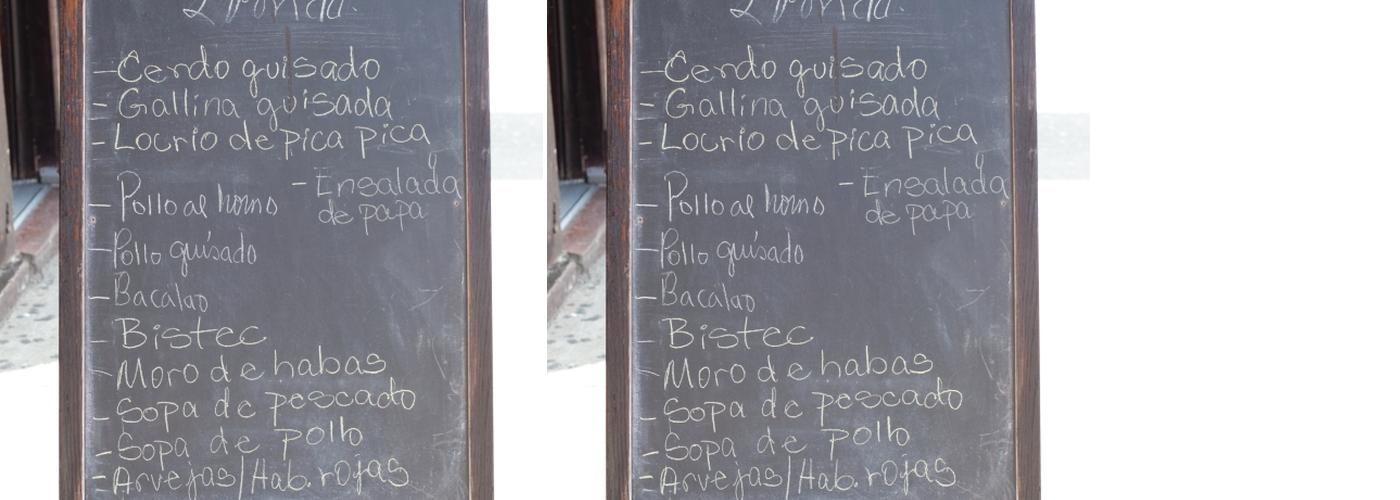 - Cerdo guisado
- Gallina guisada
- Locrio de pica pica
- Ensalada
de papa
- Pollo al horno
- Pollo guisado
- Bacalao
- Bistec
- Moro de habas
- Sopa de pescado
- Sopa de pollo
- Arvejas/Hab. rojas
- Cerdo guisado
- Gallina guisada
- Locrio de pica pica
- Ensalada
de papa
- Pollo al horno
- Pollo guisado
- Bacalao
- Bistec
- Moro de habas
- Sopa de pescado
- Sopa de pollo
- Arvejas/Hab. rojas